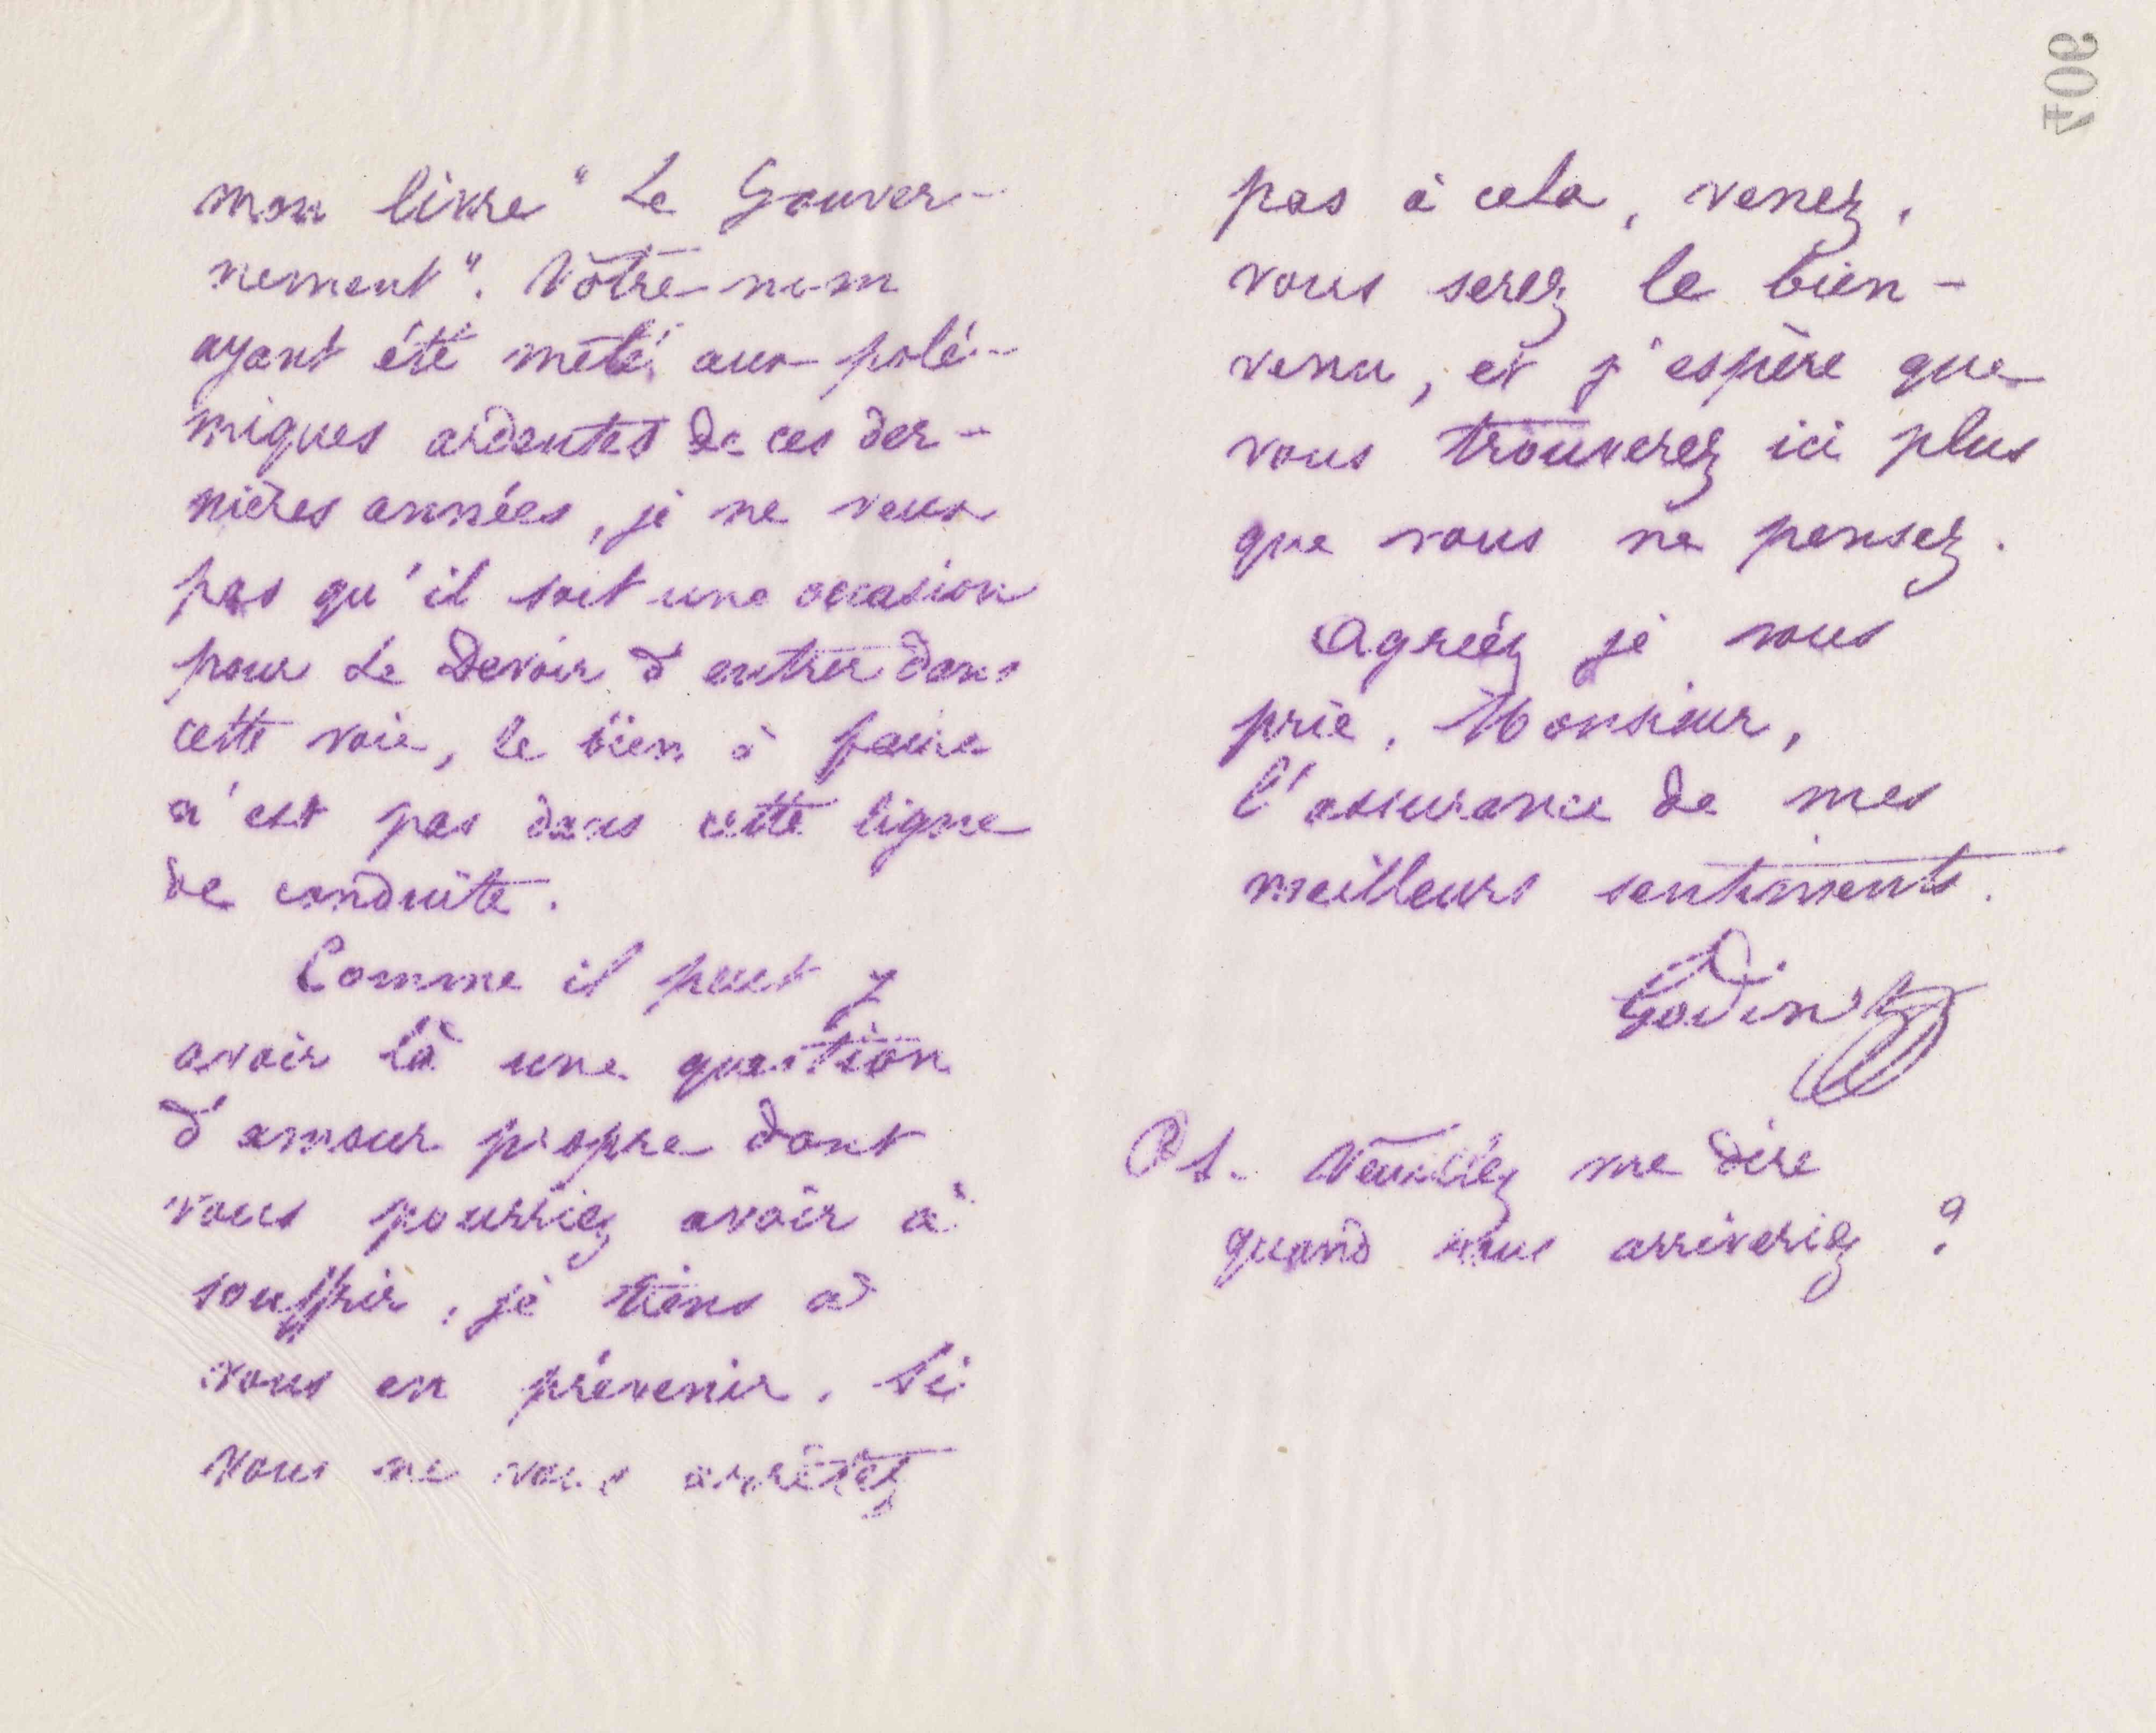 mon livre "Le Gouver-
nement". Votre nom
ayant été mêlé aux polé-
miques ardentes de ces der-
nières années, je ne veux
pas qu'il soit une occasion
pour Le Devoir d'entrer dans
cette voie, le bien à faire
n'est pas dans cette ligne
de conduite.
Comme il peut y
avoir là une question
d'amour propre dont
vous pourriez avoir à
souffrir, je tiens à
vous en prévenir. Si
vous ne vous arrêtez
406
pas à cela, venez,
vous serez le bien-
venu, et j'espère que
vous trouverez ici plus
que vous ne pensez.
Agréez je vous
prie, Monsieur,
l'assurance de mes
meilleurs sentiments.
Godin
Ps. Veuillez me dire
quand vous arriveriez ?